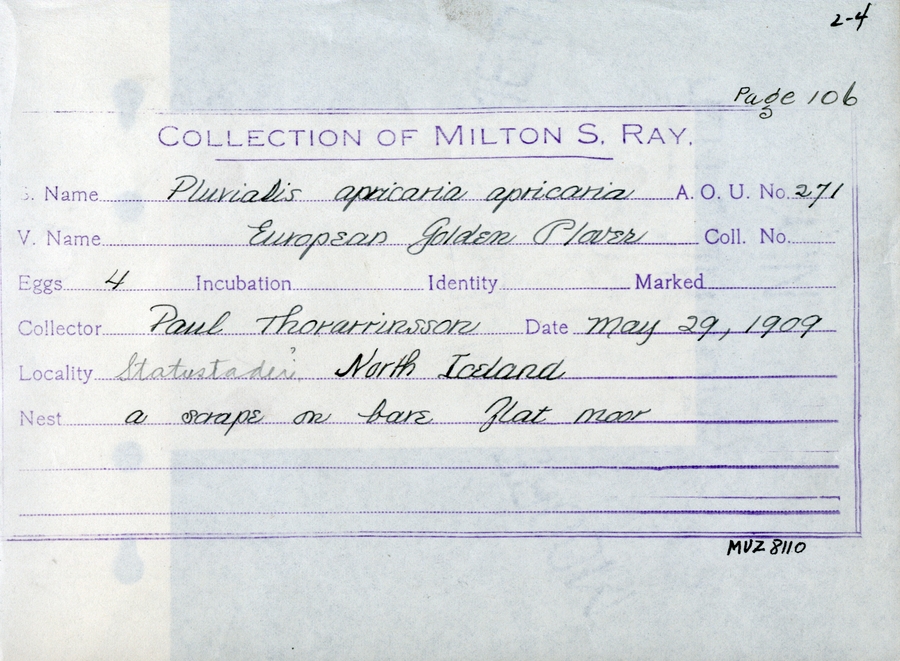 2-4
Page 106
COLLECTION OF MILTON S. RAY.
S. Name Pluvialis apricaria apricaria A. O. U. No. 271
V. Name European Golden Plover Coll. No.
Eggs 4 Incubation Identity Marked
Collector Paul Thorarrinsson Date May 29, 1909
Locality Statustadir? North Iceland
Nest a scrape on bare flat moor
MVZ 8110